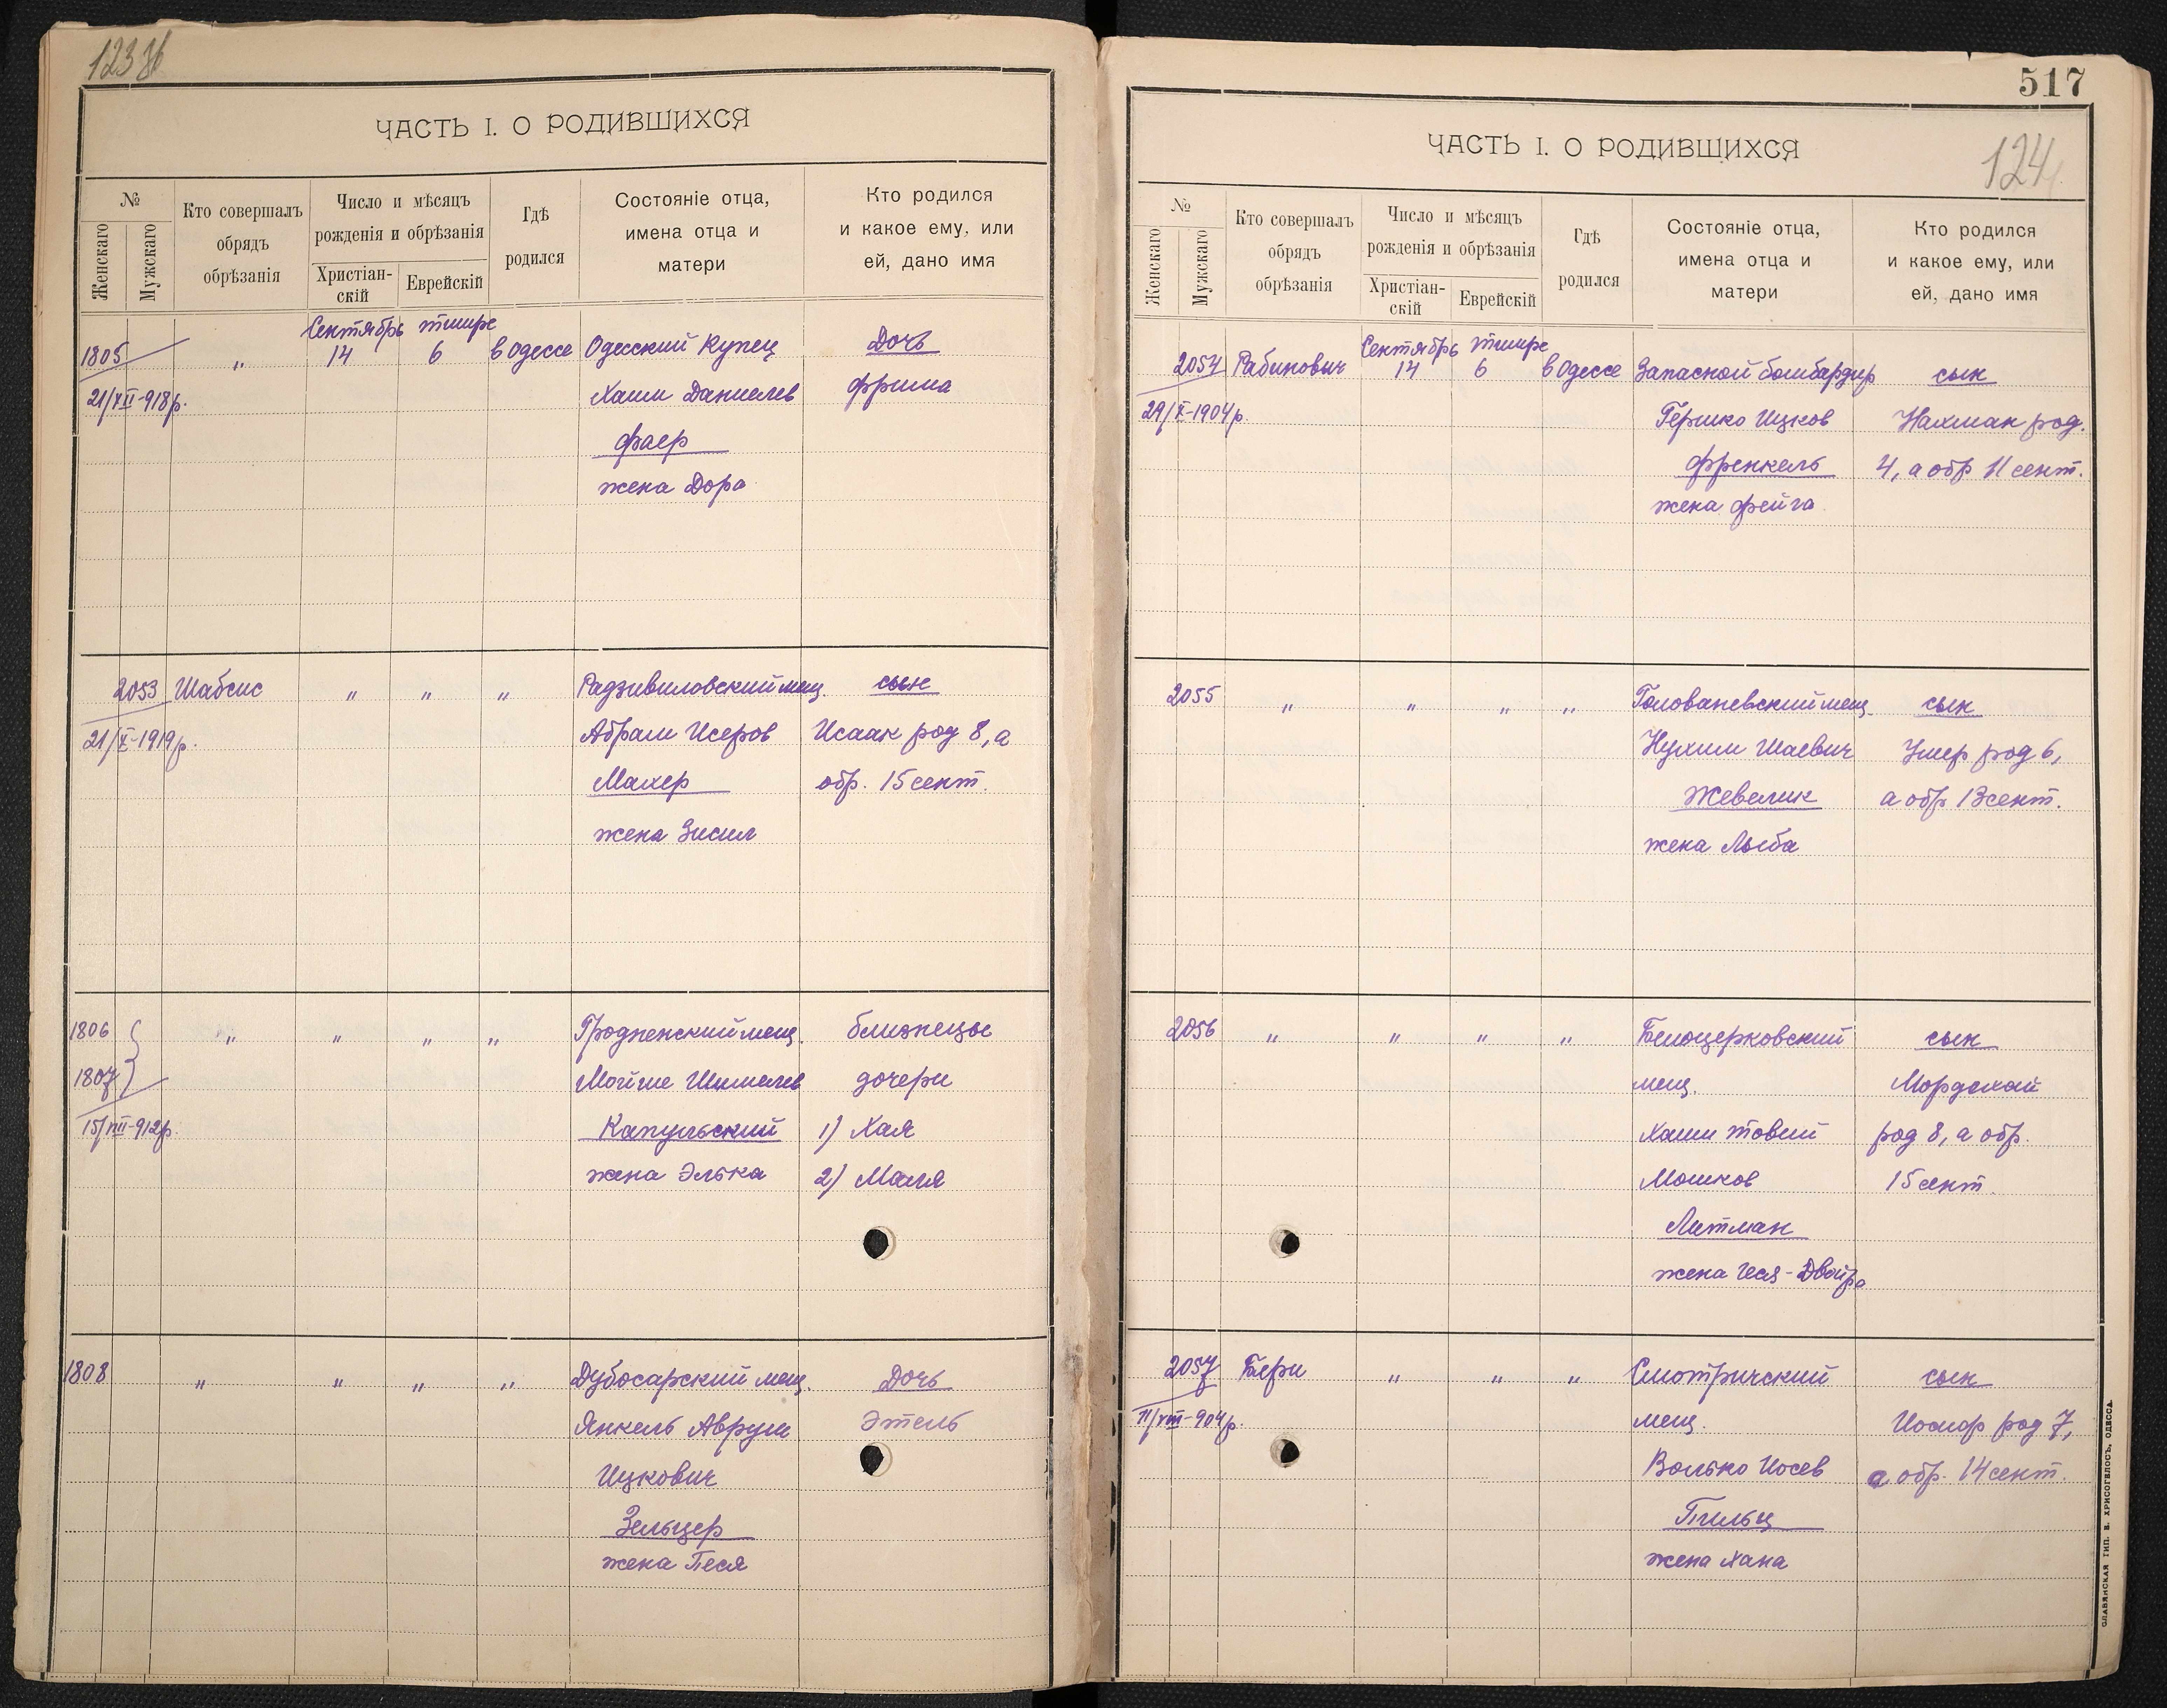 123
ЧАСТЬ I. О РОДИВШИХСЯ
№
Женскаго
Мужскаго
Кто совершалъ
обрядъ
обрѣзанія
Число и мѣсяцъ
рожденія и обрѣзанія
Христіан-
скій
Еврейскій
Гдѣ
родился
Состояніе отца,
имена отца и
матери
Кто родился
и какое ему, или
ей, дано имя
1805 " Сентябрь 14 тишре 6 в Одессе Одесский Купец Дочь
21/XII-918р. Хаим Даниелев Фрима
Фаер
жена Дора
2053 Шабсис " " " Радзивиловский мещ. сын
21/X-1919р. Абрам Исеров Исаак род 8, а
Махер обр. 15 сент.
жена Зисил
1806 " " " " Гродненский мещ. близнецы
1807 Мойше Шмилев дочери
15/VIII-912р. Капульский 1) Хая
жена Элька 2) Маля
1808 " " " " Дубосарский мещ. Дочь
Янкель Аврум Этель
Ицкович
Зельцер
жена Песя
517
124
ЧАСТЬ I. О РОДИВШИХСЯ
№
Женскаго
Мужскаго
Кто совершалъ
обрядъ
обрѣзанія
Число и мѣсяцъ
рожденія и обрѣзанія
Христіан-
скій
Еврейскій
Гдѣ
родился
Состояніе отца,
имена отца и
матери
Кто родился
и какое ему, или
ей, дано имя
2054 Рабинович Сентябрь 14 тишре 6 в Одессе Запасной бомбардир сын
29/X-1904р. Гершко Ицков Нахман род.
Френкель 4, а обр 11 сент.
жена Фейга
2055 " " " " Голованевский мещ. сын
Нухим Шаевич Умер род 6,
Жевелик а обр 13 сент.
жена Лыба
2056 " " " " Белоцерковский сын
мещ. Мордехай
Хаим Товий род 8, а обр.
Мошков 15 сент.
Литман
жена Геся-Двойра
2057 Бери " " " Смотричский сын
11/VIII-904р. мещ. Иосиф род 7,
Волько Иосев а обр. 14 сент.
Пильц
жена Хана
СЛАВЯНСКАЯ ТИП. Е. ХРИСОГЕЛОСЪ, ОДЕССА.